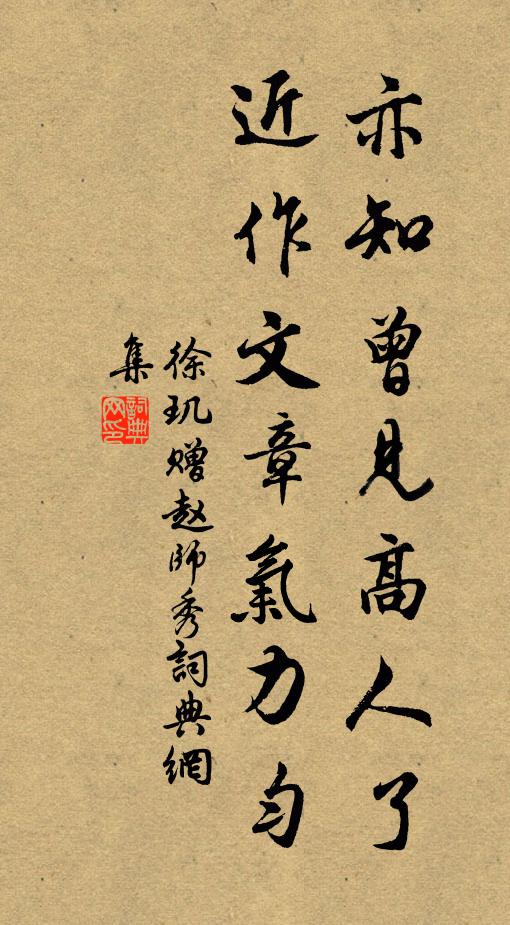 亦知曾見高人了
近作文章氣力勻
徐玑赠赵師秀詞典網
集
詞典
网印